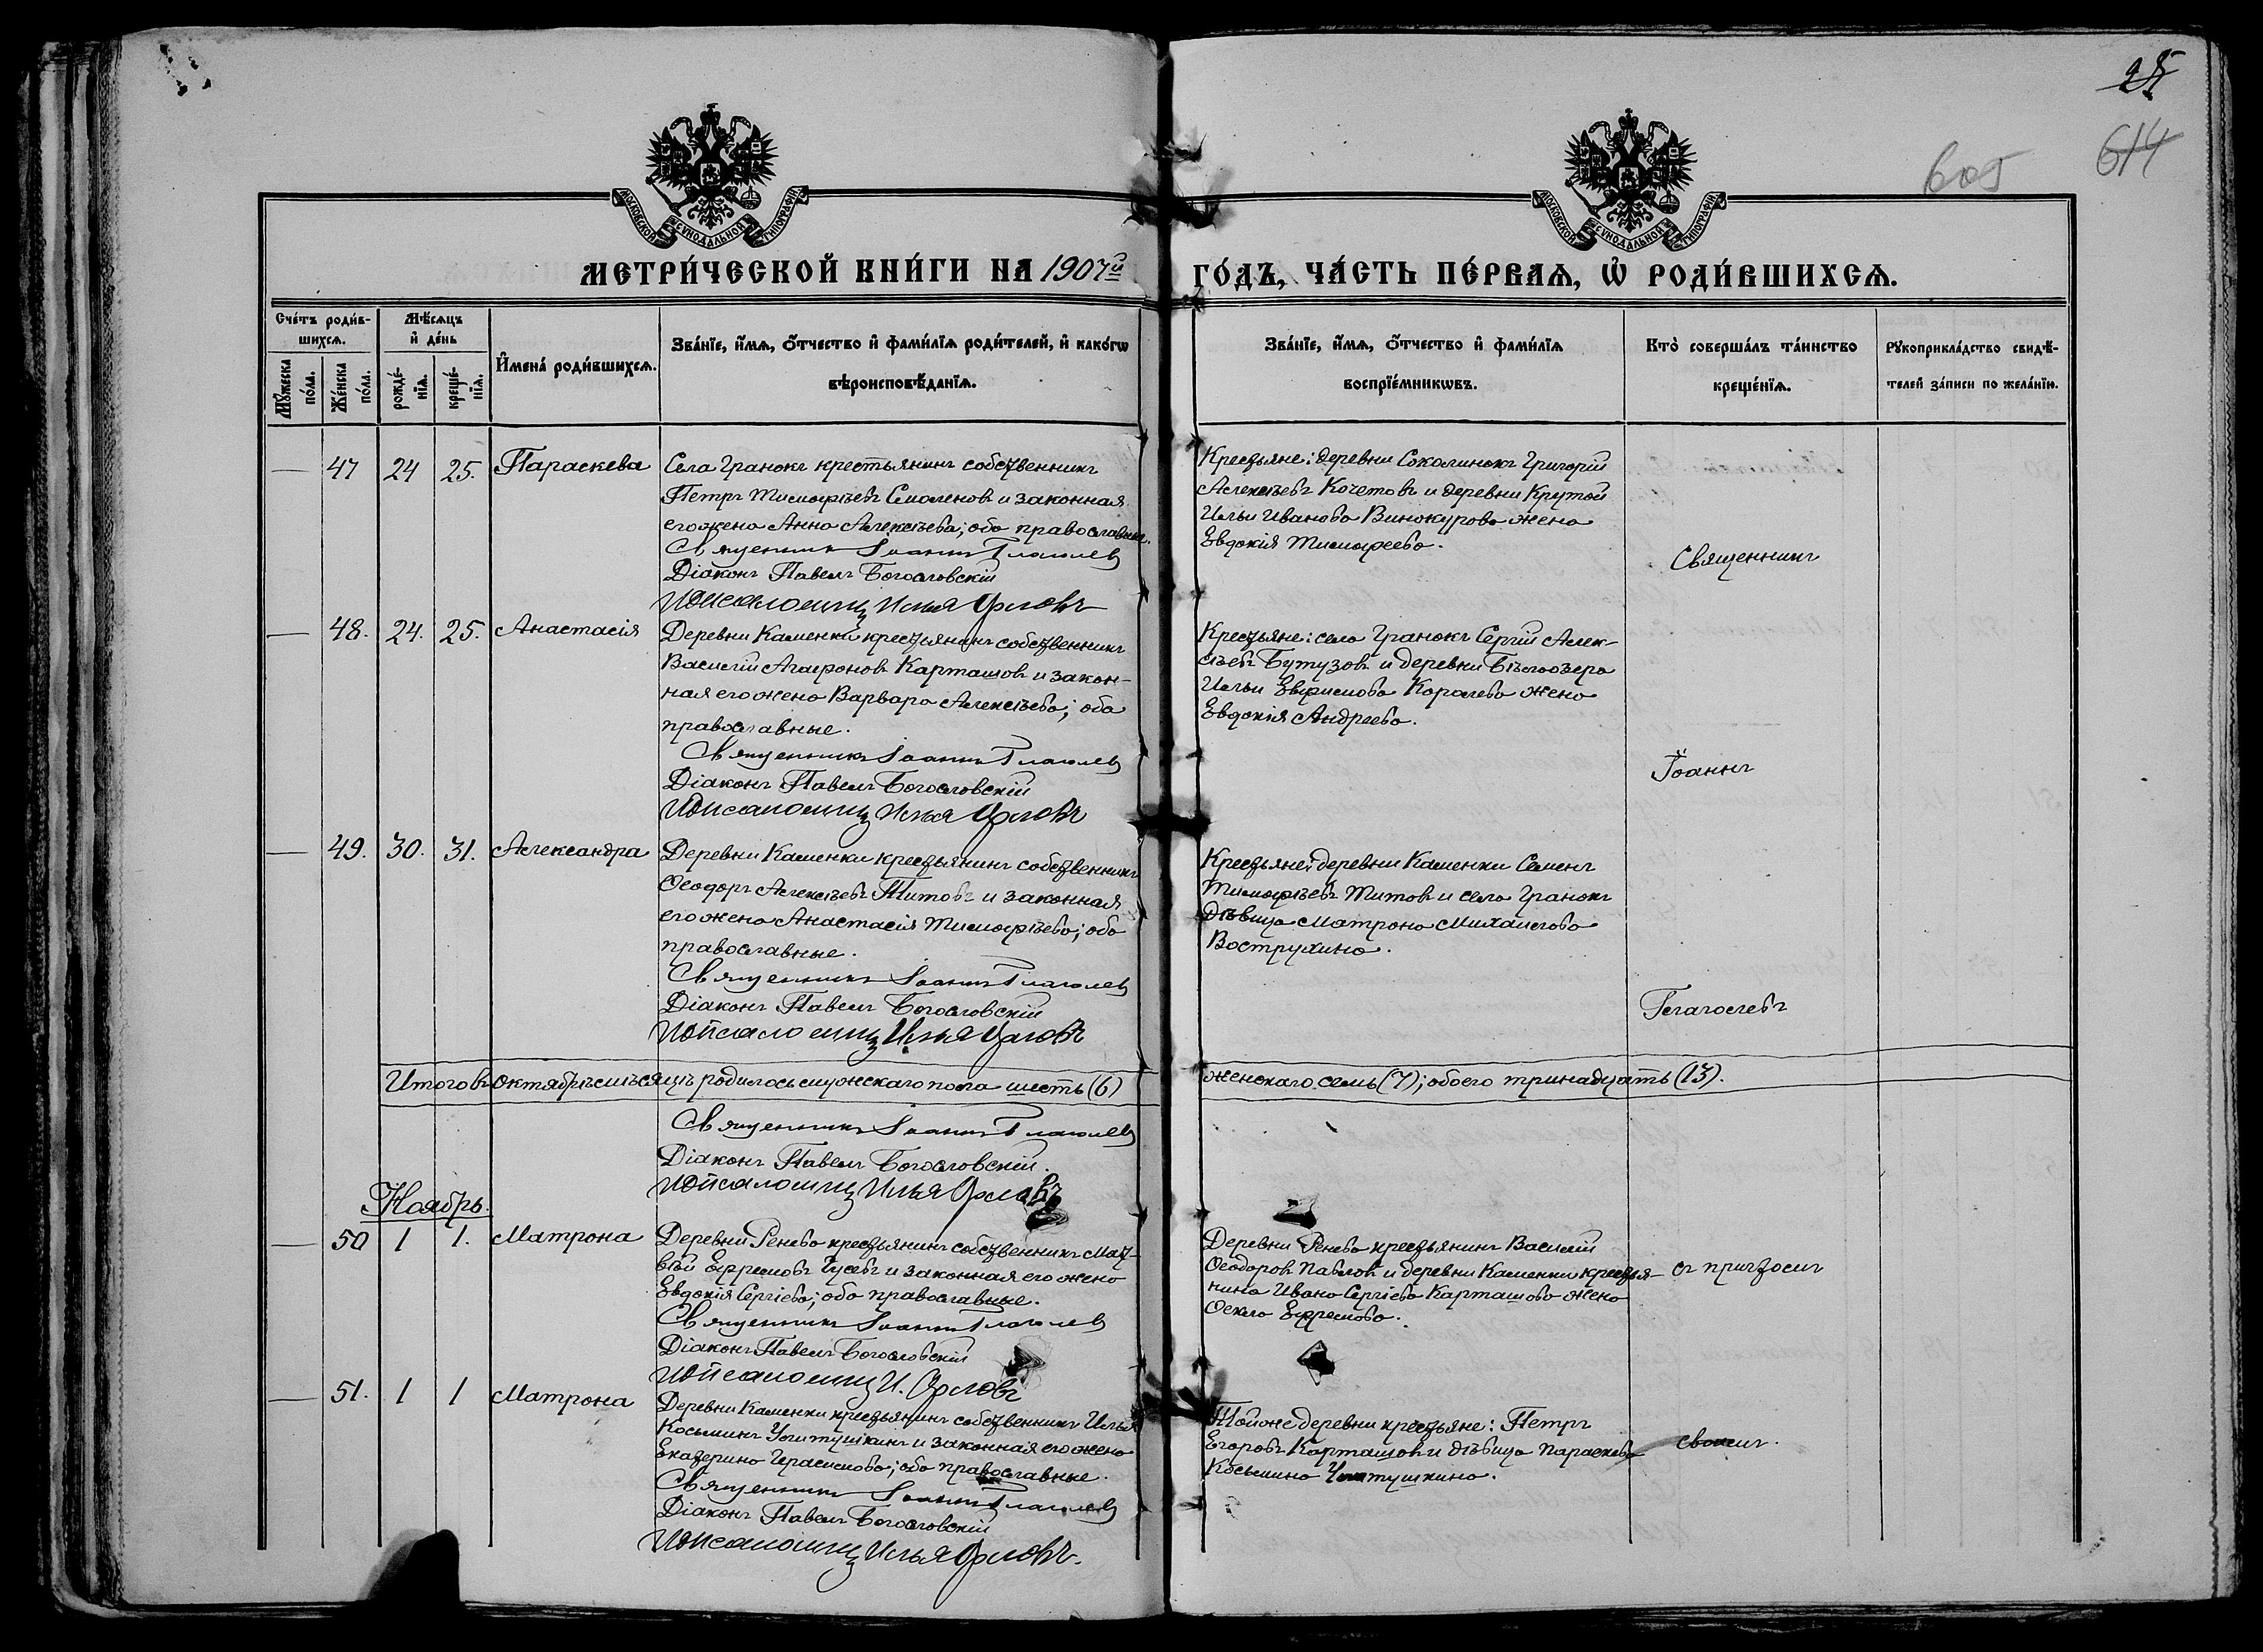 25
614
605
МОСКОВСКОЙ СѴНОДАЛЬНОЙ ТИПОГРАФІИ
МОСКОВСКОЙ СѴНОДАЛЬНОЙ ТИПОГРАФІИ
МЕТРИ́ЧЕСКОЙ КНИ́ГИ НА 1907й ГО́ДЪ, ЧА́СТЬ ПЕ́РВАѦ, Ѡ҆ РОДИ́ВШИХСѦ.
Сче́тъ роди́в-
шихсѧ.
Мꙋ́жеска по́ла.
Же́нска по́ла.
Мѣ́сѧцъ
и҆ де́нь
рожде́-
нїѧ.
креще́-
нїѧ.
И҆мена̀ роди́вшихсѧ.
Зва́нїе, и҆́мѧ, ѻ҆́тчество и҆ фами́лїѧ роди́телей, и҆ како́гѡ
вѣроисповѣ́данїѧ.
Зва́нїе, и҆́мѧ, ѻ҆́тчество и҆ фами́лїѧ
воспрїе́мникѡвъ.
Кто̀ соверша́лъ та́инство
креще́нїѧ.
Рꙋкоприкла́дство свидѣ́-
телей за́писи по жела́нїю.
— 47 24 25. Параскева
Села Гранокъ крестьянинъ собственникъ
Петръ Тимофѣевъ Смоленовъ и законная
его жена Анна Алексѣева; оба православные.
Священникъ Іоаннъ Глаголев
Діаконъ Павелъ Богословскій
Псаломщ Илья Орловъ
Крестьяне: деревни Соколинокъ Григорій
Алексѣевъ Кочетовъ и деревни Крутой
Ильи Иванова Винокурова жена
Евдокія Тимофеева.
Священникъ
— 48. 24. 25. Анастасія
Деревни Каменки крестьянинъ собственникъ
Василій Агафоновъ Карташовъ и закон-
ная его жена Варвара Алексѣева; оба
православные.
Священникъ Іоаннъ Глаголев
Діаконъ Павелъ Богословскій
Псаломщ Илья Орловъ
Крестьяне: села Гранокъ Сергій Алек-
сѣевъ Бутузовъ и деревни Бѣлоозера
Ильи Евфимова Королева жена
Евдокія Андреева.
Іоаннъ
— 49. 30. 31. Александра
Деревни Каменки крестьянинъ собственникъ
Ѳеодоръ Алексѣевъ Титовъ и законная
его жена Анастасія Тимофѣева; оба
православные.
Священникъ Іоаннъ Глаголев
Діаконъ Павелъ Богословскій
Псаломщ Илья Орловъ
Крестьяне: деревни Каменки Семенъ
Тимофѣевъ Титовъ и села Гранокъ
дѣвица Матрона Михаилова
Вострухина.
Глаголевъ
Итого въ октябрѣ мѣсяцѣ родилось мужскаго пола шесть (6) женскаго семь (7); обоего тринадцать (13).
Священникъ Іоаннъ Глаголев
Діаконъ Павелъ Богословскій.
Псаломщ Илья Орловъ
Ноябрь.
— 50 1 1. Матрона
Деревни Ренева крестьянинъ собственникъ Мат-
вѣй Ефремовъ Гусевъ и законная его жена
Евдокія Сергіева; оба православные.
Священникъ Іоаннъ Глаголев
Діаконъ Павелъ Богословскій
Псаломщ И. Орловъ
Деревни Ренева крестьянинъ Василій
Ѳеодоровъ Павловъ и деревни Каменки крестья-
нина Ивана Сергіева Карташова жена
Ѳекла Ефремова.
съ причтомъ
— 51. 1 1 Матрона
Деревни Каменки крестьянинъ собственникъ Илья
Косьминъ и законная его жена
Екатерина Герасимова; оба православные.
Священникъ Іоаннъ Глаголев
Діаконъ Павелъ Богословскій
Псаломщ Илья Орловъ.
Тойже деревни крестьяне: Петръ
Егоровъ Карташовъ и дѣвица Параскева
Косьмина
своимъ.